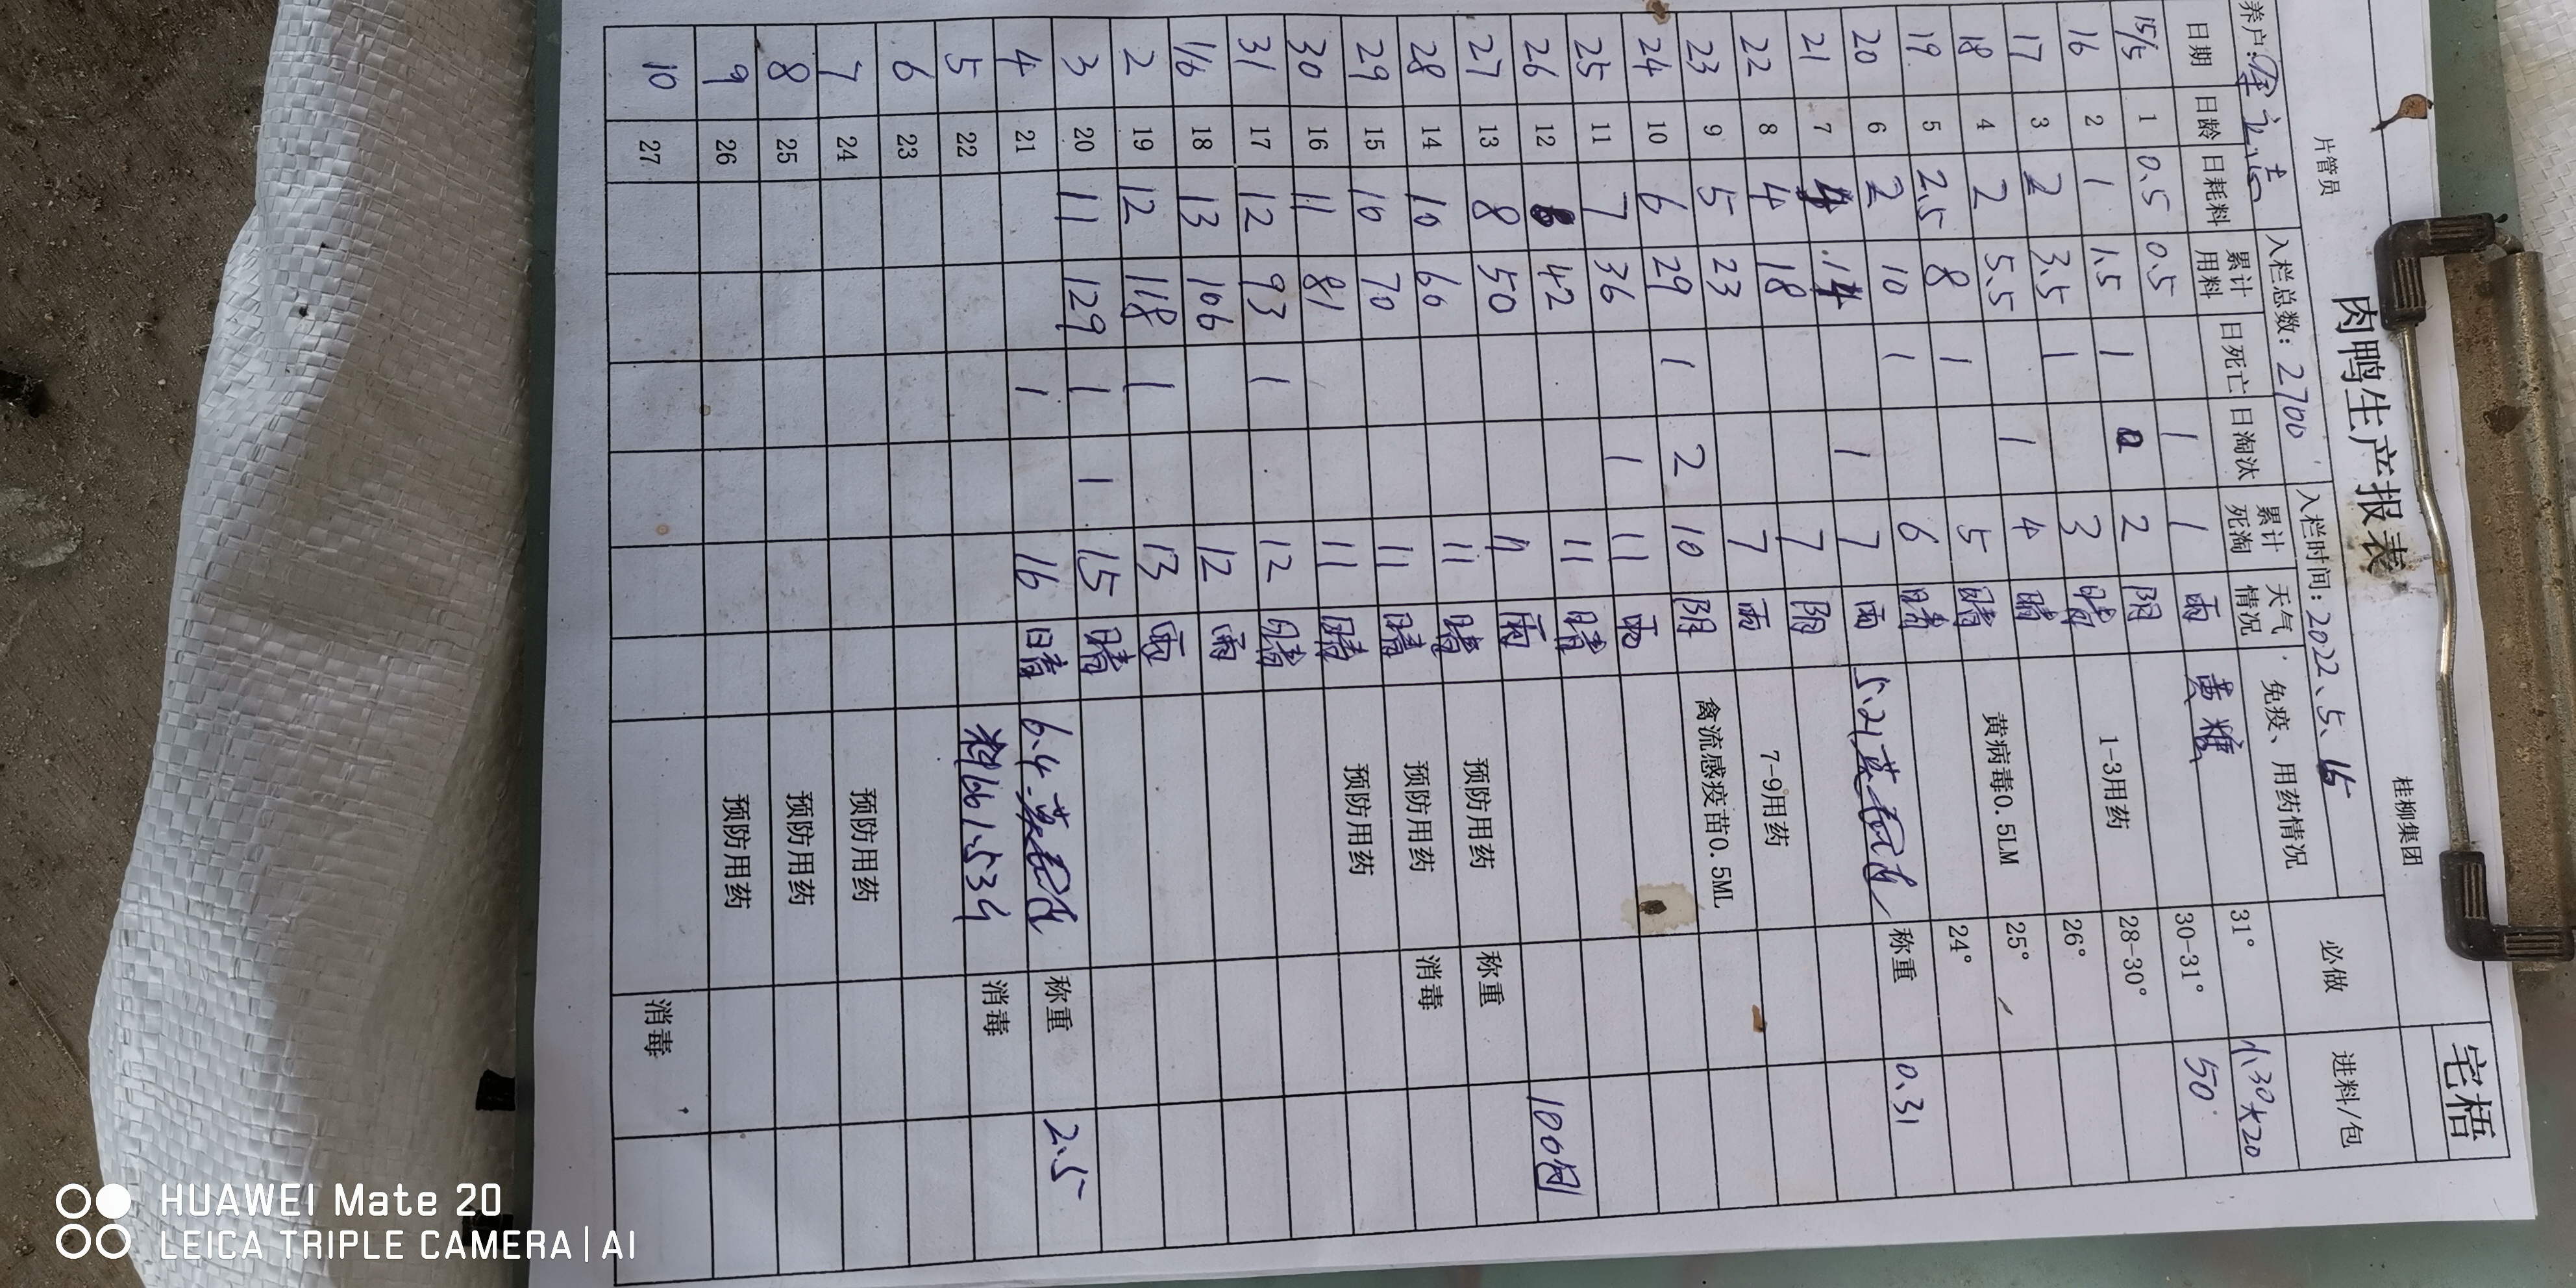 宅梧
肉鸭生产报表
桂柳集团
片管员
养户: 入栏总数: 2700 入栏时间: 2022、5、15
日期 日龄 日耗料 累计用料 日死亡 日淘汰 累计死淘 天气情况 免疫、用药情况 必做 进料/包
31° 小30大20
15/5 1 0.5 0.5 1 1 雨 黄糖 30-31° 50
16 2 1 1.5 1 0 2 阴 28-30°
17 3 2 3.5 1 3 晴 1-3用药 26°
18 4 2 5.5 1 4 晴 25°
19 5 2.5 8 1 5 晴 黄病毒0.5LM 24°
20 6 2 10 1 6 晴 称重 0.31
21 7 4 14 1 7 雨 5.21
22 8 4 18 7 阴
23 9 5 23 7 雨 7-9用药
24 10 6 29 1 2 10 阴 禽流感疫苗0.5ML
25 11 7 36 1 11 雨
26 12 6 42 11 晴 100
27 13 8 50 11 雨 称重
28 14 10 60 11 晴 预防用药 消毒
29 15 10 70 11 晴 预防用药
30 16 11 81 11 晴 预防用药
31 17 12 93 1 12 晴
1/6 18 13 106 12 雨
2 19 12 118 1 13 雨
3 20 11 129 1 1 15 晴
4 21 1 16 晴 6.4 称重 2.5
5 22 料 消毒
6 23
7 24 预防用药
8 25 预防用药
9 26 预防用药
10 27 消毒
HUAWEI Mate 20
LEICA TRIPLE CAMERA | AI